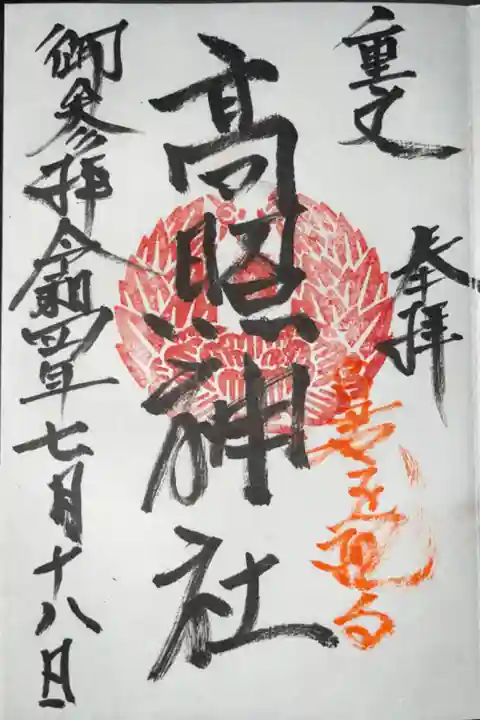 重文
奉拝
夏を迎る
高照神社
御参拝令和四年七月十八日